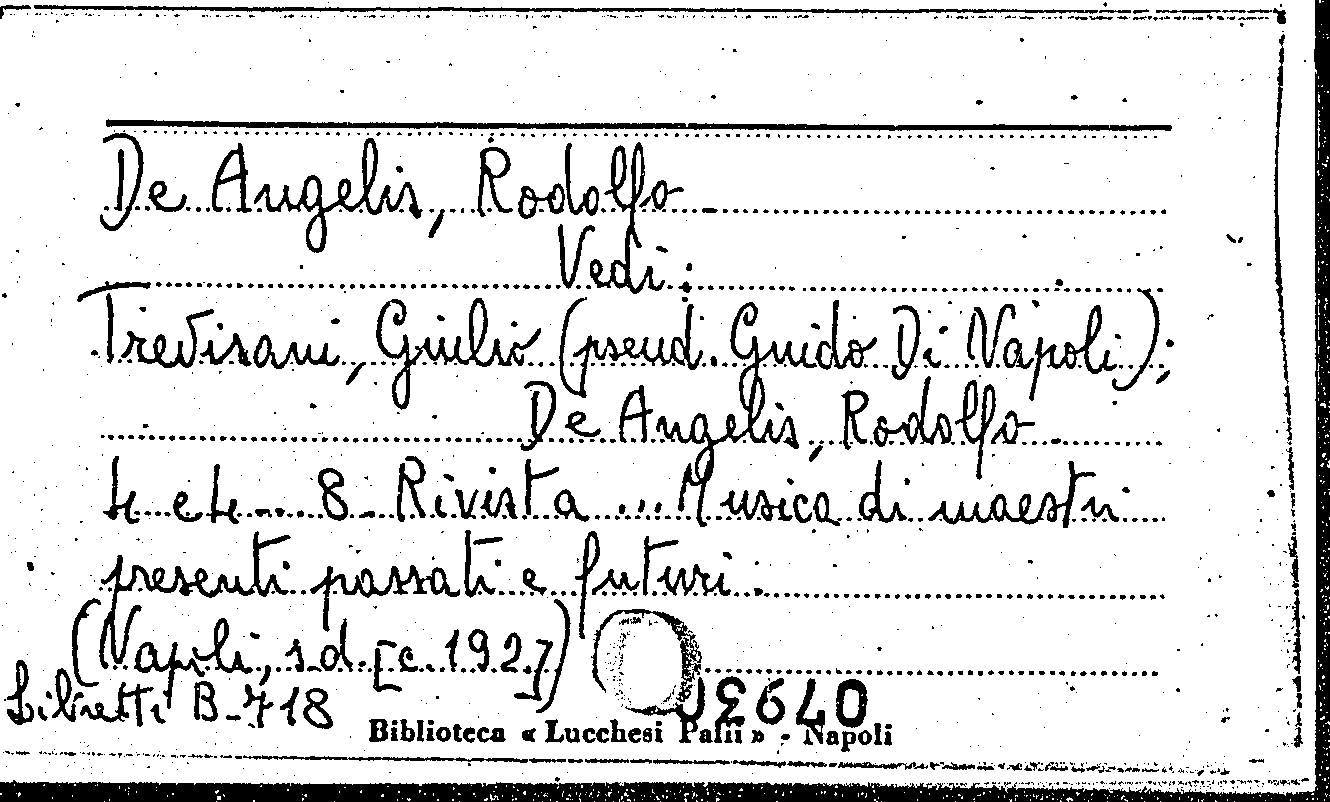 De Angelis, Rodolfo
Vedi:
Trevisani, Giulio (pseud. Guido Di Napoli);
De Angelis, Rodolfo.
4 e 4... 8 - Rivista ... Musica di maestri
presenti passati e futuri.
(Napoli, s.d. [c. 192.])
Libretti B-718
Biblioteca « Lucchesi Palli » - Napoli